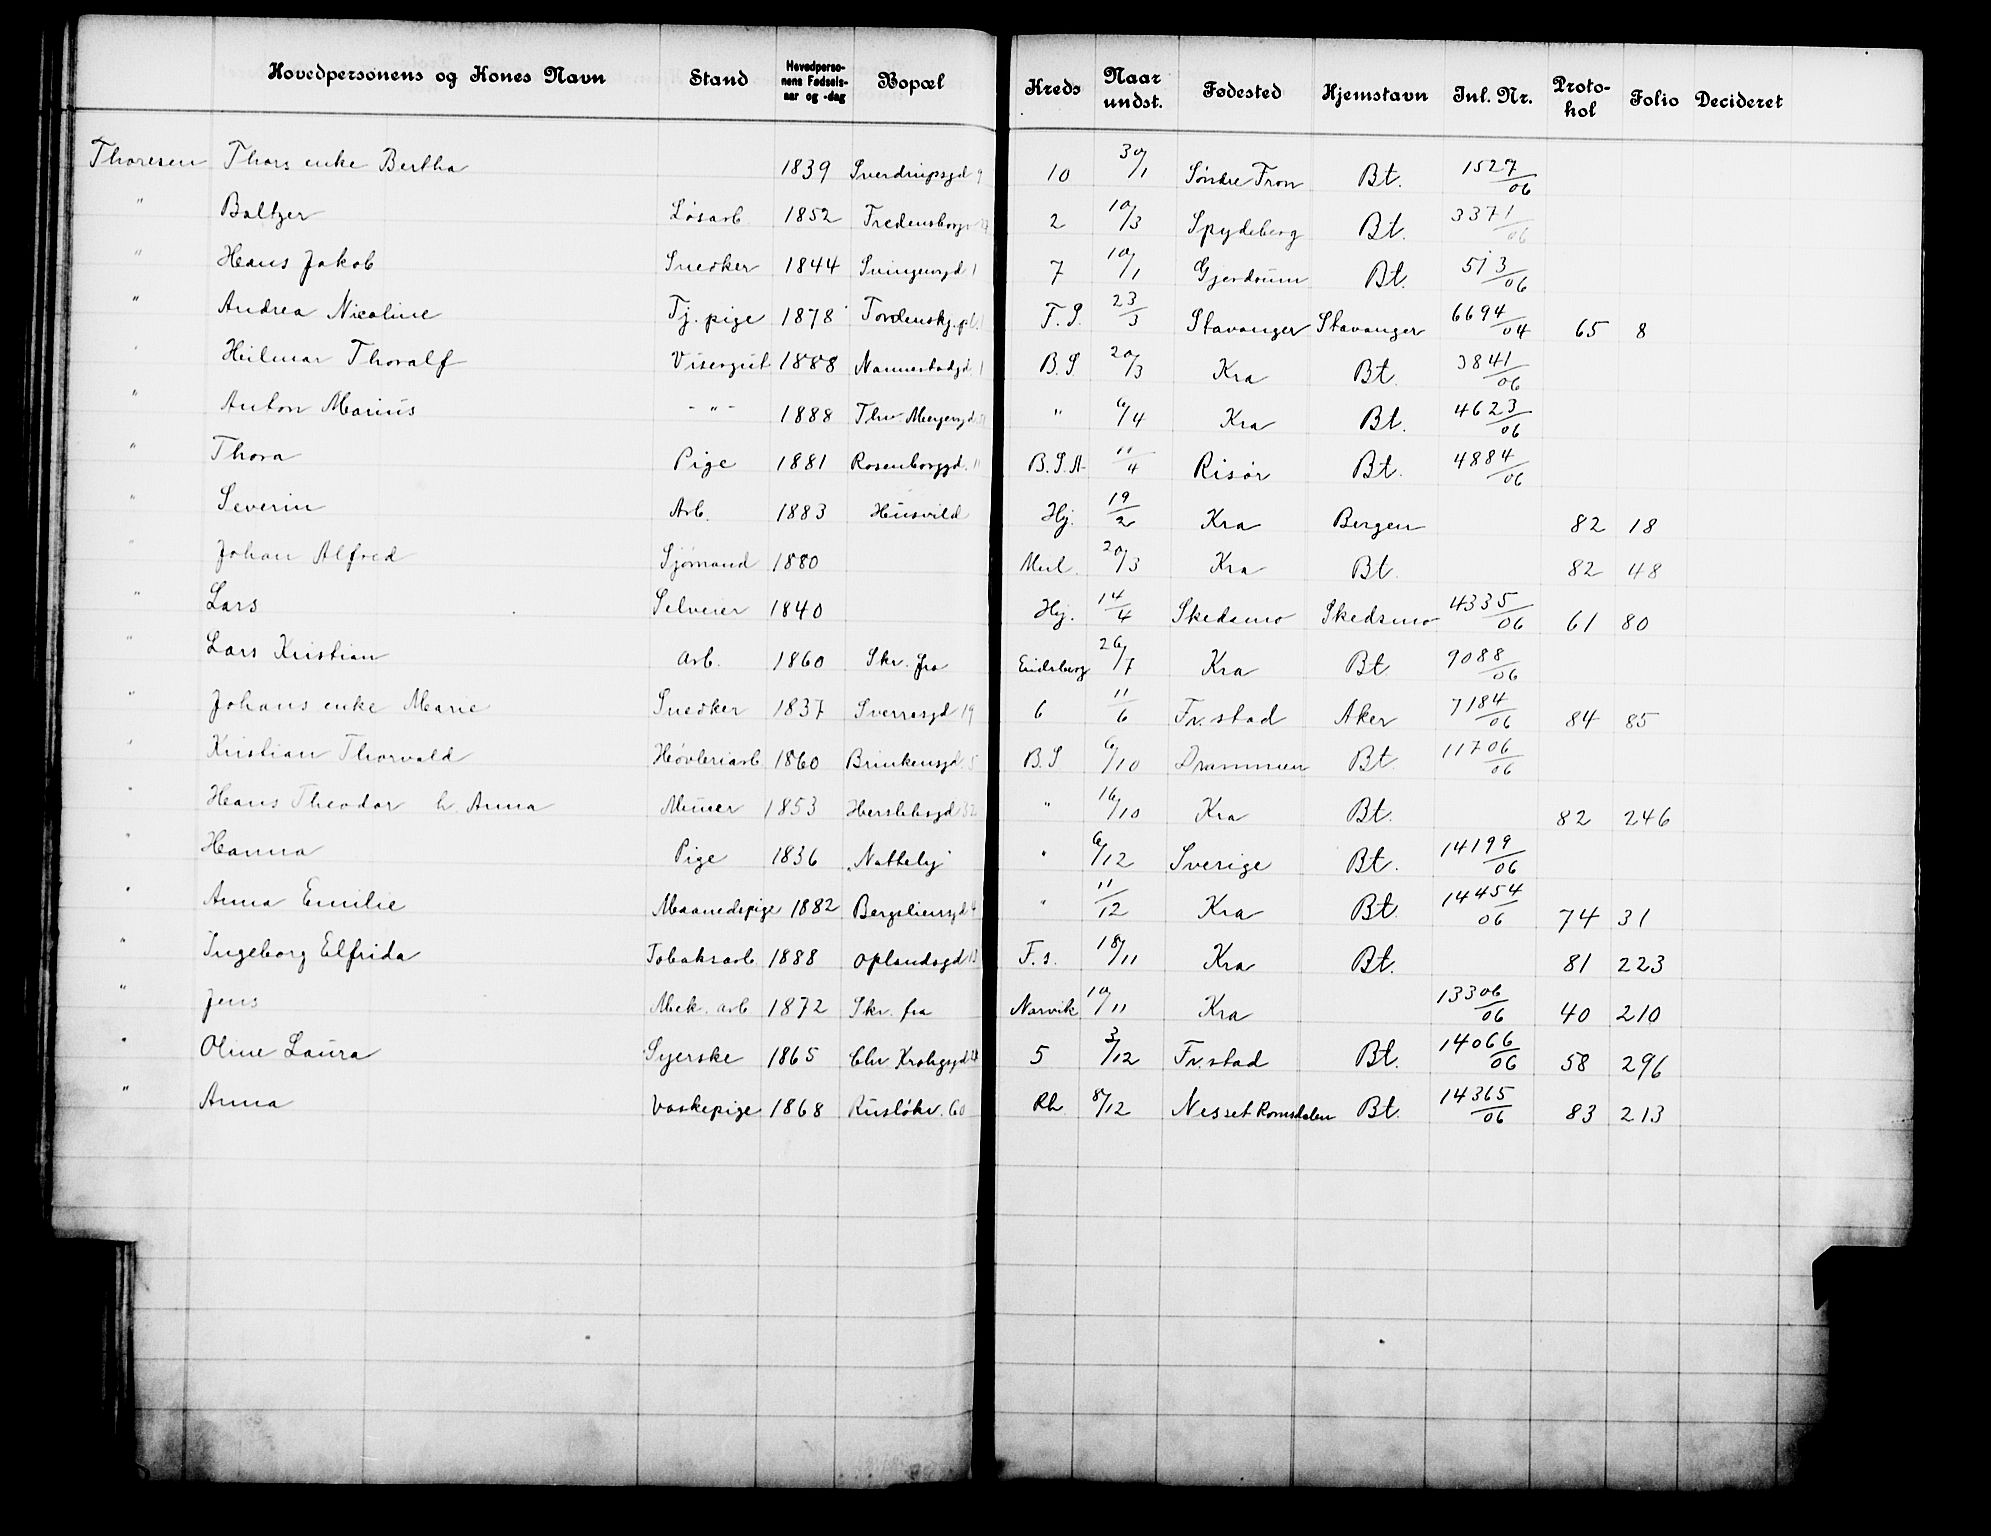 Hovedpersonens og Kones Navn Stand Hovedperso-nens Fødsels-aar og -dag Bopæl Kreds Naar undst. Fødested Hjemstavn Jnl. Nr. Proto-kol Folio Decideret
Thoresen Thors enke Bertha 1839 Sverdrupsgd 9 10 30/1 Søndre Fron Bt. 1527/06
" Baltzer Løsarb 1852 Fredensborgv 2 10/3 Spydeberg Bt. 3371/06
" Hans Jakob Snedker 1844 Svingensgd 1 7 10/1 Gjerdrum Bt. 513/06
" Andrea Nicoline Tj. pige 1878 Tordenskj.pl. 1 F. S. 23/3 Stavanger Stavanger 6694/04 65 8
" Hilmar Thoralf Visergut 1888 Nannestadgd 1 B. S. 20/3 Kra Bt. 3841/06
" Anton Marius - " - 1888 Thv. Meyersgd " 6/4 Kra Bt. 4623/06
" Thora Pige 1881 Rosenborggd. 11 B. S. A. 11/4 Risør Bt. 4884/06
" Severin Arb. 1883 Husvild Hj. 19/2 Kra Bergen 82 18
" Johan Alfred Sjømand 1880 20/3 Kra Bt. 82 48
" Lars Selveier 1840 Hj. 14/4 Skedsmo Skedsmo 4335/06 61 80
" Lars Kristian Arb. 1860 Skr. fra Eidsberg 26/7 Kra Bt 9088/06
" Johans enke Marie Snedker 1837 Sverresgd 19 6 11/6 Fr.stad Aker 7184/06 84 85
" Kristian Thorvald Høvleriarb 1860 Brinkensgd. 5 B. S 6/10 Drammen Bt. 11706/06
" Hans Theodor h. Anna Murer 1853 Herslebsgd 32 " 16/10 Kra Bt. 82 246
" Hanna Pige 1836 "Nattely" " 6/12 Sverige Bt. 14199/06
" Anna Emilie Maanedspige 1882 Bergsliensgd 4 " 11/12 Kra Bt. 14454/06 74 31
" Ingeborg Elfrida Tobaksarb. 1888 Oplandsgd 13 F. s. 18/11 Kra Bt. 81 223
" Jens Mek. arb 1872 Skr. fra Narvik 10/11 Kra 13306/06 40 210
" Oline Laura Syerske 1865 Chr Krohgsgd 5 3/12 Fr.stad Bt. 14066/06 58 296
" Anna Vaskepige 1868 Rusløkv. 60 Rh. 8/12 Nesset Romsdalen Bt. 14365/06 83 213